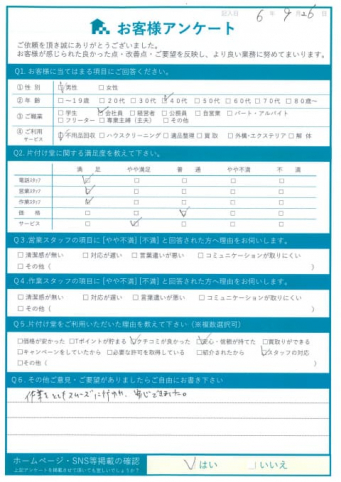 記入日 6 年 4 月 26 日
お客様アンケート
ご依頼を頂き誠にありがとうございました。
お客様が感じられた良かった点・改善点・ご要望を反映し、より良い業務に努めてまいります。
Q1. お客様に当てはまる項目にご回答ください。
① 性 別 □男性 □女性
② 年 齢 □～19歳 □20代 □30代 ☑40代 □50代 □60代 □70代 □80歳～
③ ご職業 □学生 ☑会社員 □経営者 □公務員 □自営業 □パート・アルバイト
□フリーター □専業主婦（主夫） □その他
④ ご利用サービス ☑不用品回収 □ハウスクリーニング □遺品整理 □買取 □外構・エクステリア □解体
Q2. 片付け堂に関する満足度を教えて下さい。
満足 やや満足 普通 やや不満 不満
電話スタッフ
営業スタッフ
作業スタッフ
価格
サービス
Q3. 営業スタッフの項目に[やや不満][不満]と回答された方へ理由をお伺いします。
□清潔感が無い □対応が遅い □言葉遣いが悪い □コミュニケーションが取りにくい
□その他（ ）
Q4. 作業スタッフの項目に[やや不満][不満]と回答された方へ理由をお伺いします。
□清潔感が無い □対応が遅い □言葉遣いが悪い □コミュニケーションが取りにくい
□その他（ ）
Q5. 片付け堂をご利用いただいた理由を教えて下さい（※複数選択可）
□価格が安かった □Tポイントが貯まる ☑クチコミが良かった ☑安心・信頼が持てた □買取りができる
□キャンペーンをしていたから □必要な許可を取得している □紹介されたから ☑スタッフの対応
□その他（ ）
Q6. その他ご意見・ご要望がありましたらご自由にお書き下さい
ホームページ・SNS等掲載の確認 ☑はい □いいえ
上記アンケートを掲載させて頂いても宜しいでしょうか？